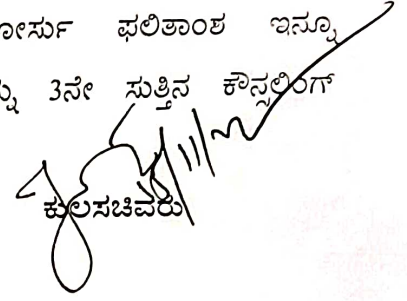 ೋರ್ಸು ಫಲಿತಾಂಶ ಇನ್ನೂ
ನ್ನು 3ನೇ ಸುತ್ತಿನ ಕೌನ್ಸಲಿಂಗ್
ಕುಲಸಚಿವರು